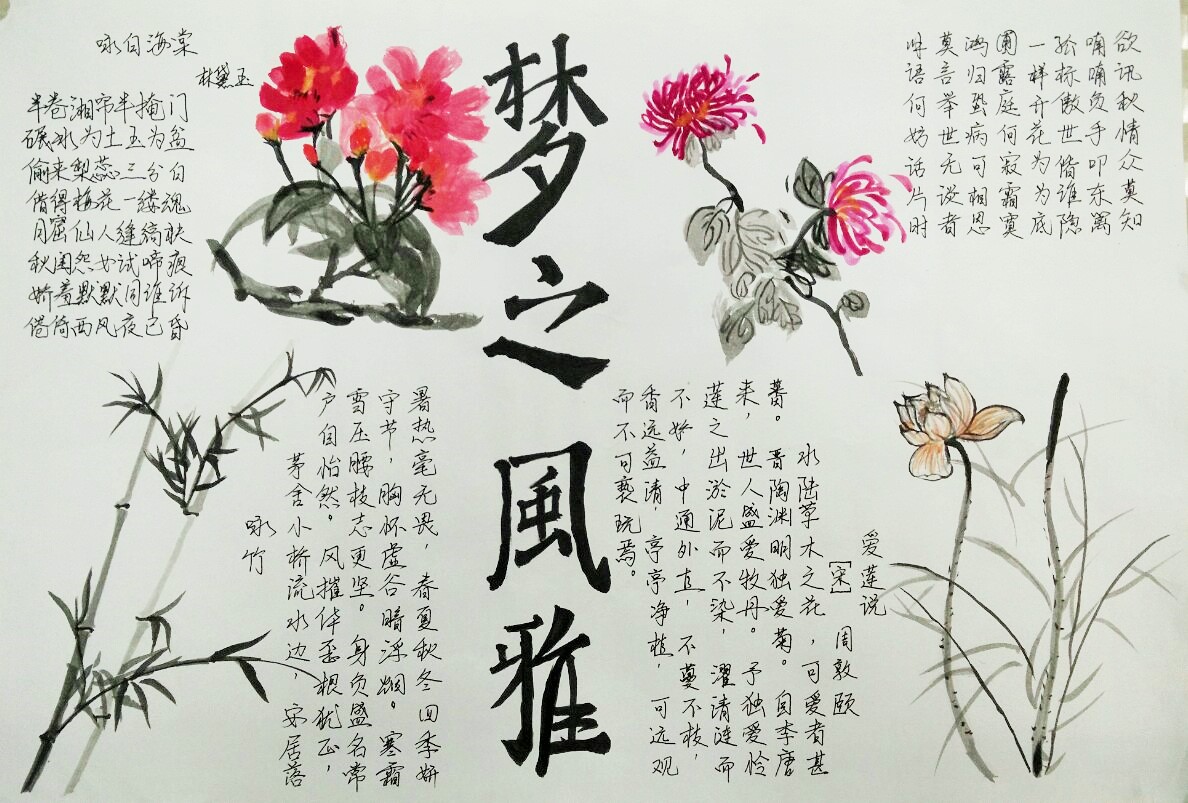 咏白海棠
林黛玉
半卷湘帘半掩门
碾冰为土玉为盆
偷来梨蕊三分白
借得梅花一缕魂
月窟仙人缝缟袂
秋闺怨女试啼痕
娇羞默默同谁诉
倦倚西风夜已昏
梦之風雅
欲讯秋情众莫知
喃喃负手叩东离
孤标傲世偕谁隐
一样开花为为底
圃露庭何寂霜寞
鸿归蛩病可相思
莫言举世无谈者
解语何妨话片时
咏竹
茅舍小桥流水边，安居落
户自怡然。风摧体歪根犹正，
雪压腰枝志更坚。身负盛名常
守节，胸怀虚谷暗浮烟。寒霜
暑热毫无畏，春夏秋冬四季妍
爱莲说
[宋] 周敦颐
水陆草木之花，可爱者甚
蕃。晋陶渊明独爱菊。自李唐
来，世人盛爱牧丹。予独爱怜
莲之出淤泥而不染，濯清涟而
不妖，中通外直，不蔓不枝，
香远益清，亭亭净植，可远观
而不可亵玩焉。